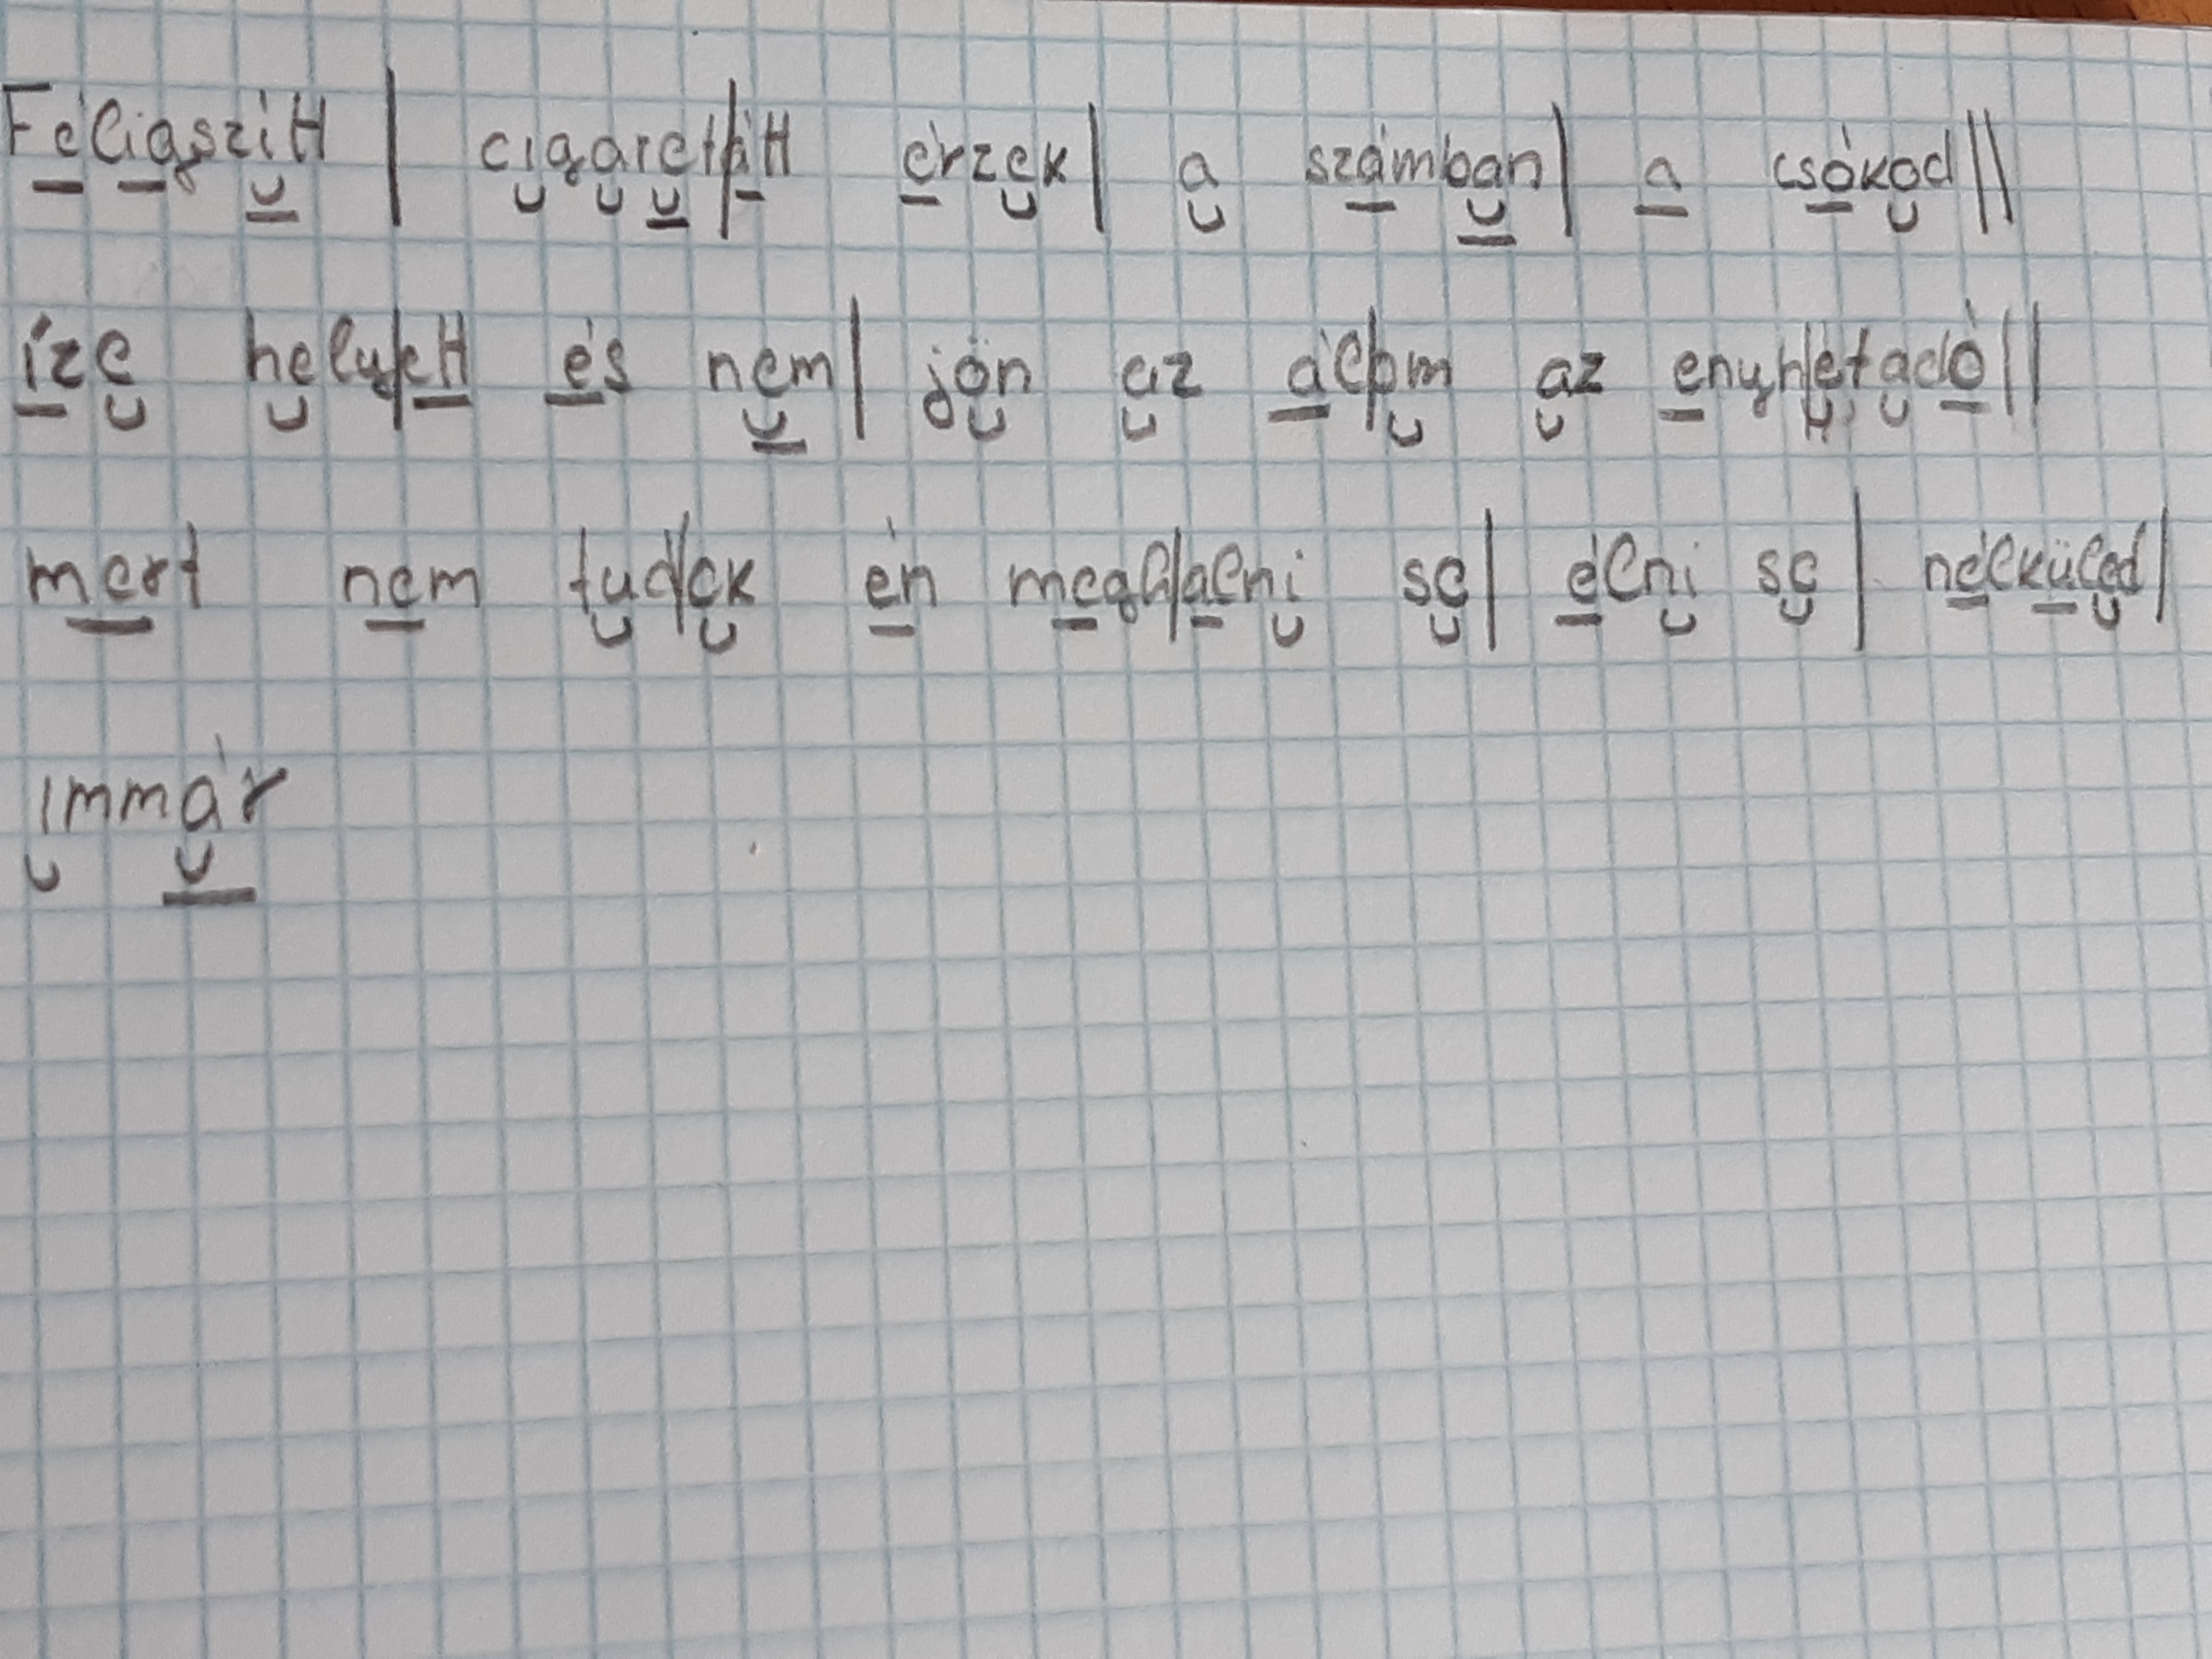 Féligszítt | cigarett|átt érzek | a számban | a csókod ||
íze hely|ett és nem | jön az ál|om az enyh|etadó ||
mert nem tud|ok én megh|alni se | élni se | nélküled |
immár